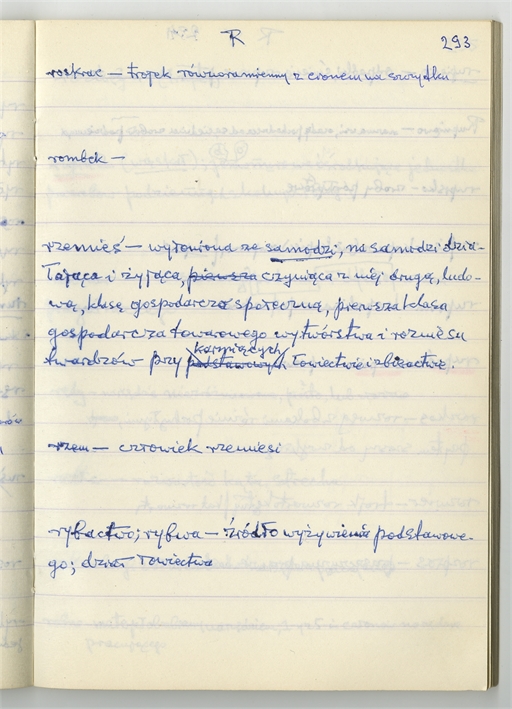 R
293
roskrac — trojek równoramienny z cronem na szczytku
rombek —
rzemieś — wyłoniona ze samodzi, na samodzi dzia-
łająca i żyjąca, pierwsza czyniąca z niej drugą, ludo-
wą, klasę gospodarczo społeczną, pierwsza klasa
gospodarcza towarowego wytwórstwa i rozniesu
karmiących
twardzów przy podstawowych łowiectwie i zbieractwie.
rzem — człowiek rzemiesi
rybactwo; rybwa — źródło wyżywienia podstawowe-
go; dział łowiectwa